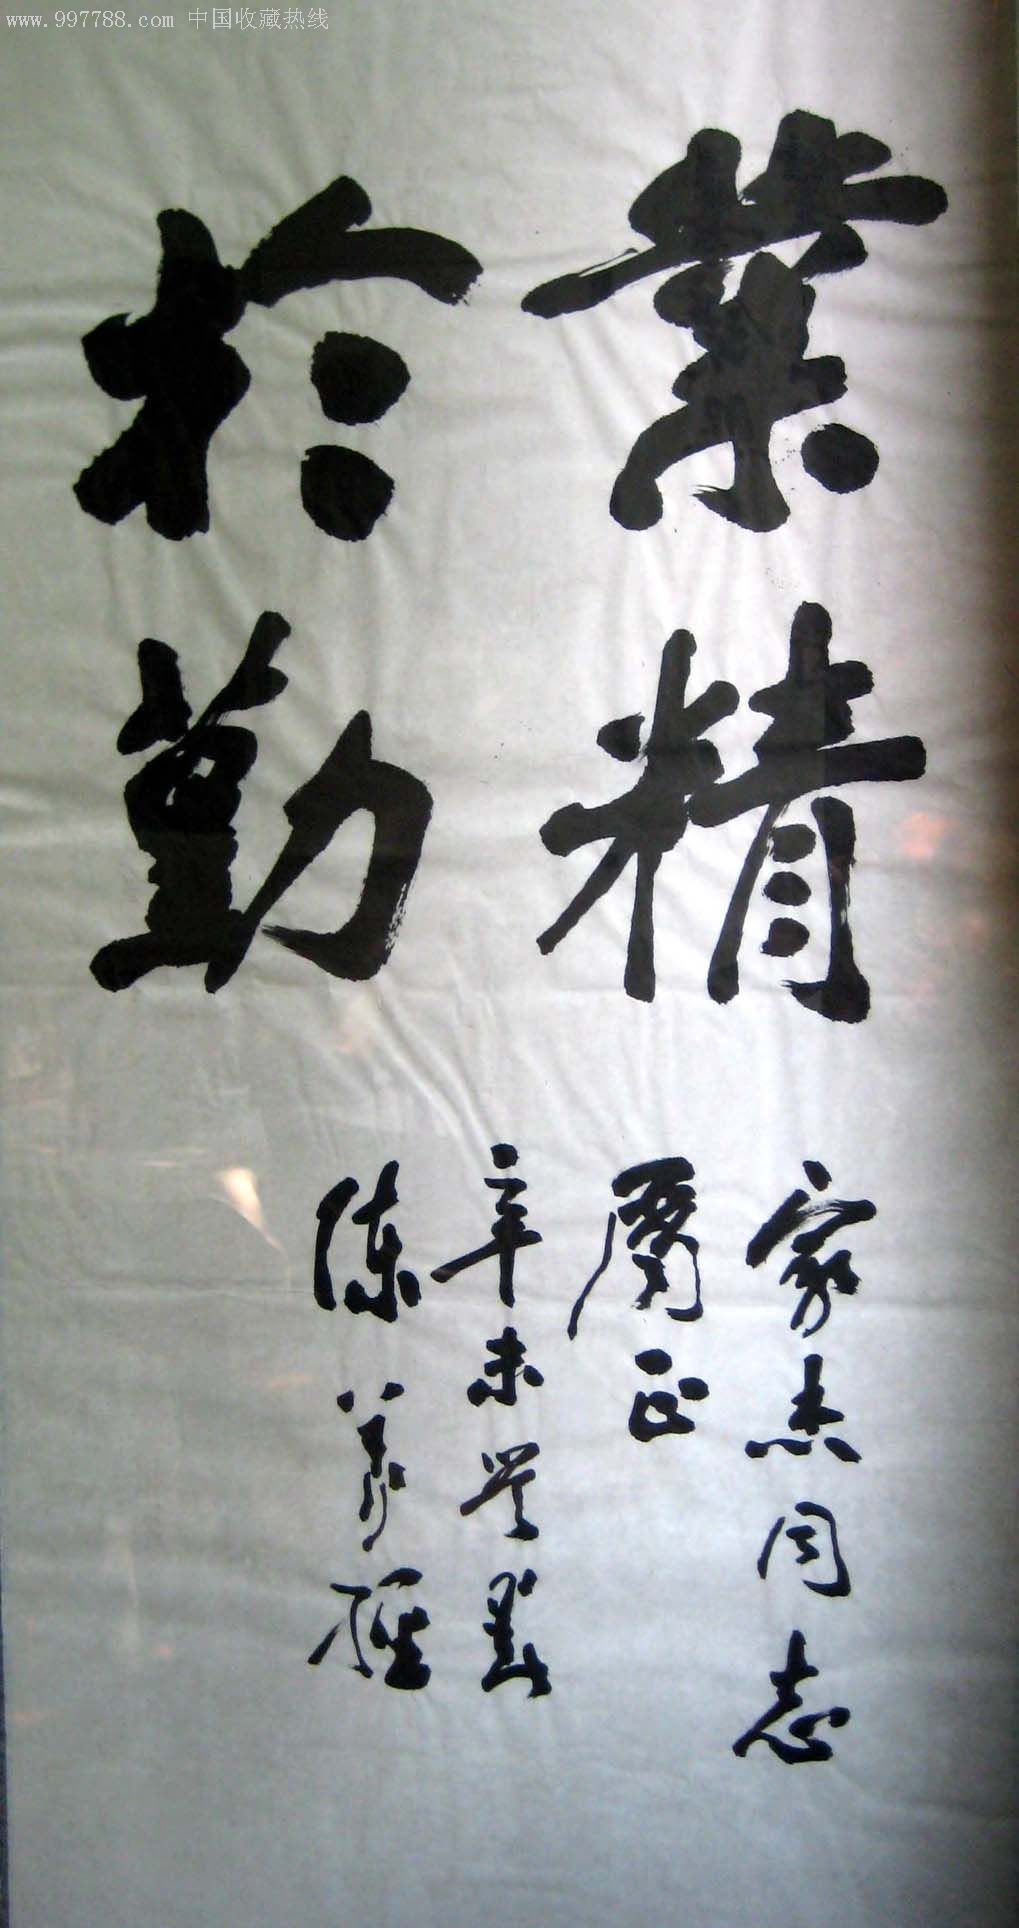 www.997788.com 中国收藏热线
業精
於勤
家杰同志
属正
辛未
陈